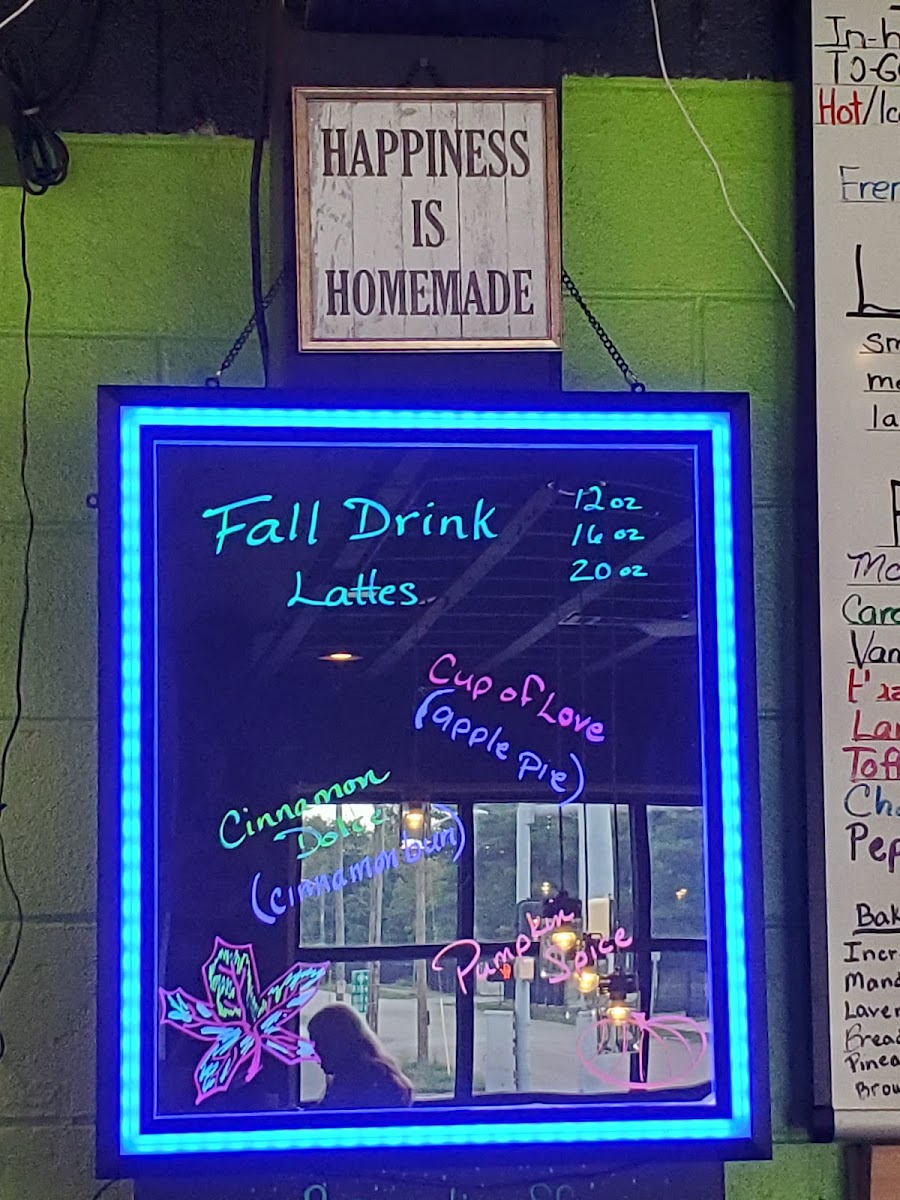 HAPPINESS
IS
HOMEMADE
Fall Drink
Lattes
12 oz
16 oz
20 oz
Cup of Love
(apple pie)
Cinnamon
Dolce
(cinnamon bun)
Pumpkin
Spice
In-h
To-G
Hot/Ic
Fren
L
sm
me
la
Mo
Cara
Van
Haz
Lav
Toff
Cho
Pep
Bak
Incr
Mand
Laven
Bread
Pinea
Brow